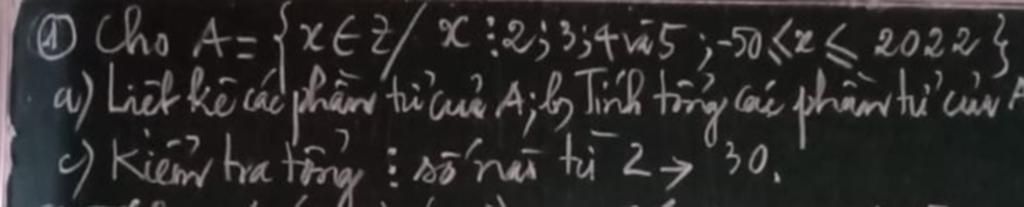 ① Cho A = {x ∈ Z / x ⋮ 2; 3; 4 và 5; -50 ≤ x ≤ 2022}
a) Liệt kê các phần tử của A; b) Tính tổng các phần tử của A
c) Kiểm tra tổng ⋮ số nào từ 2 → 30.